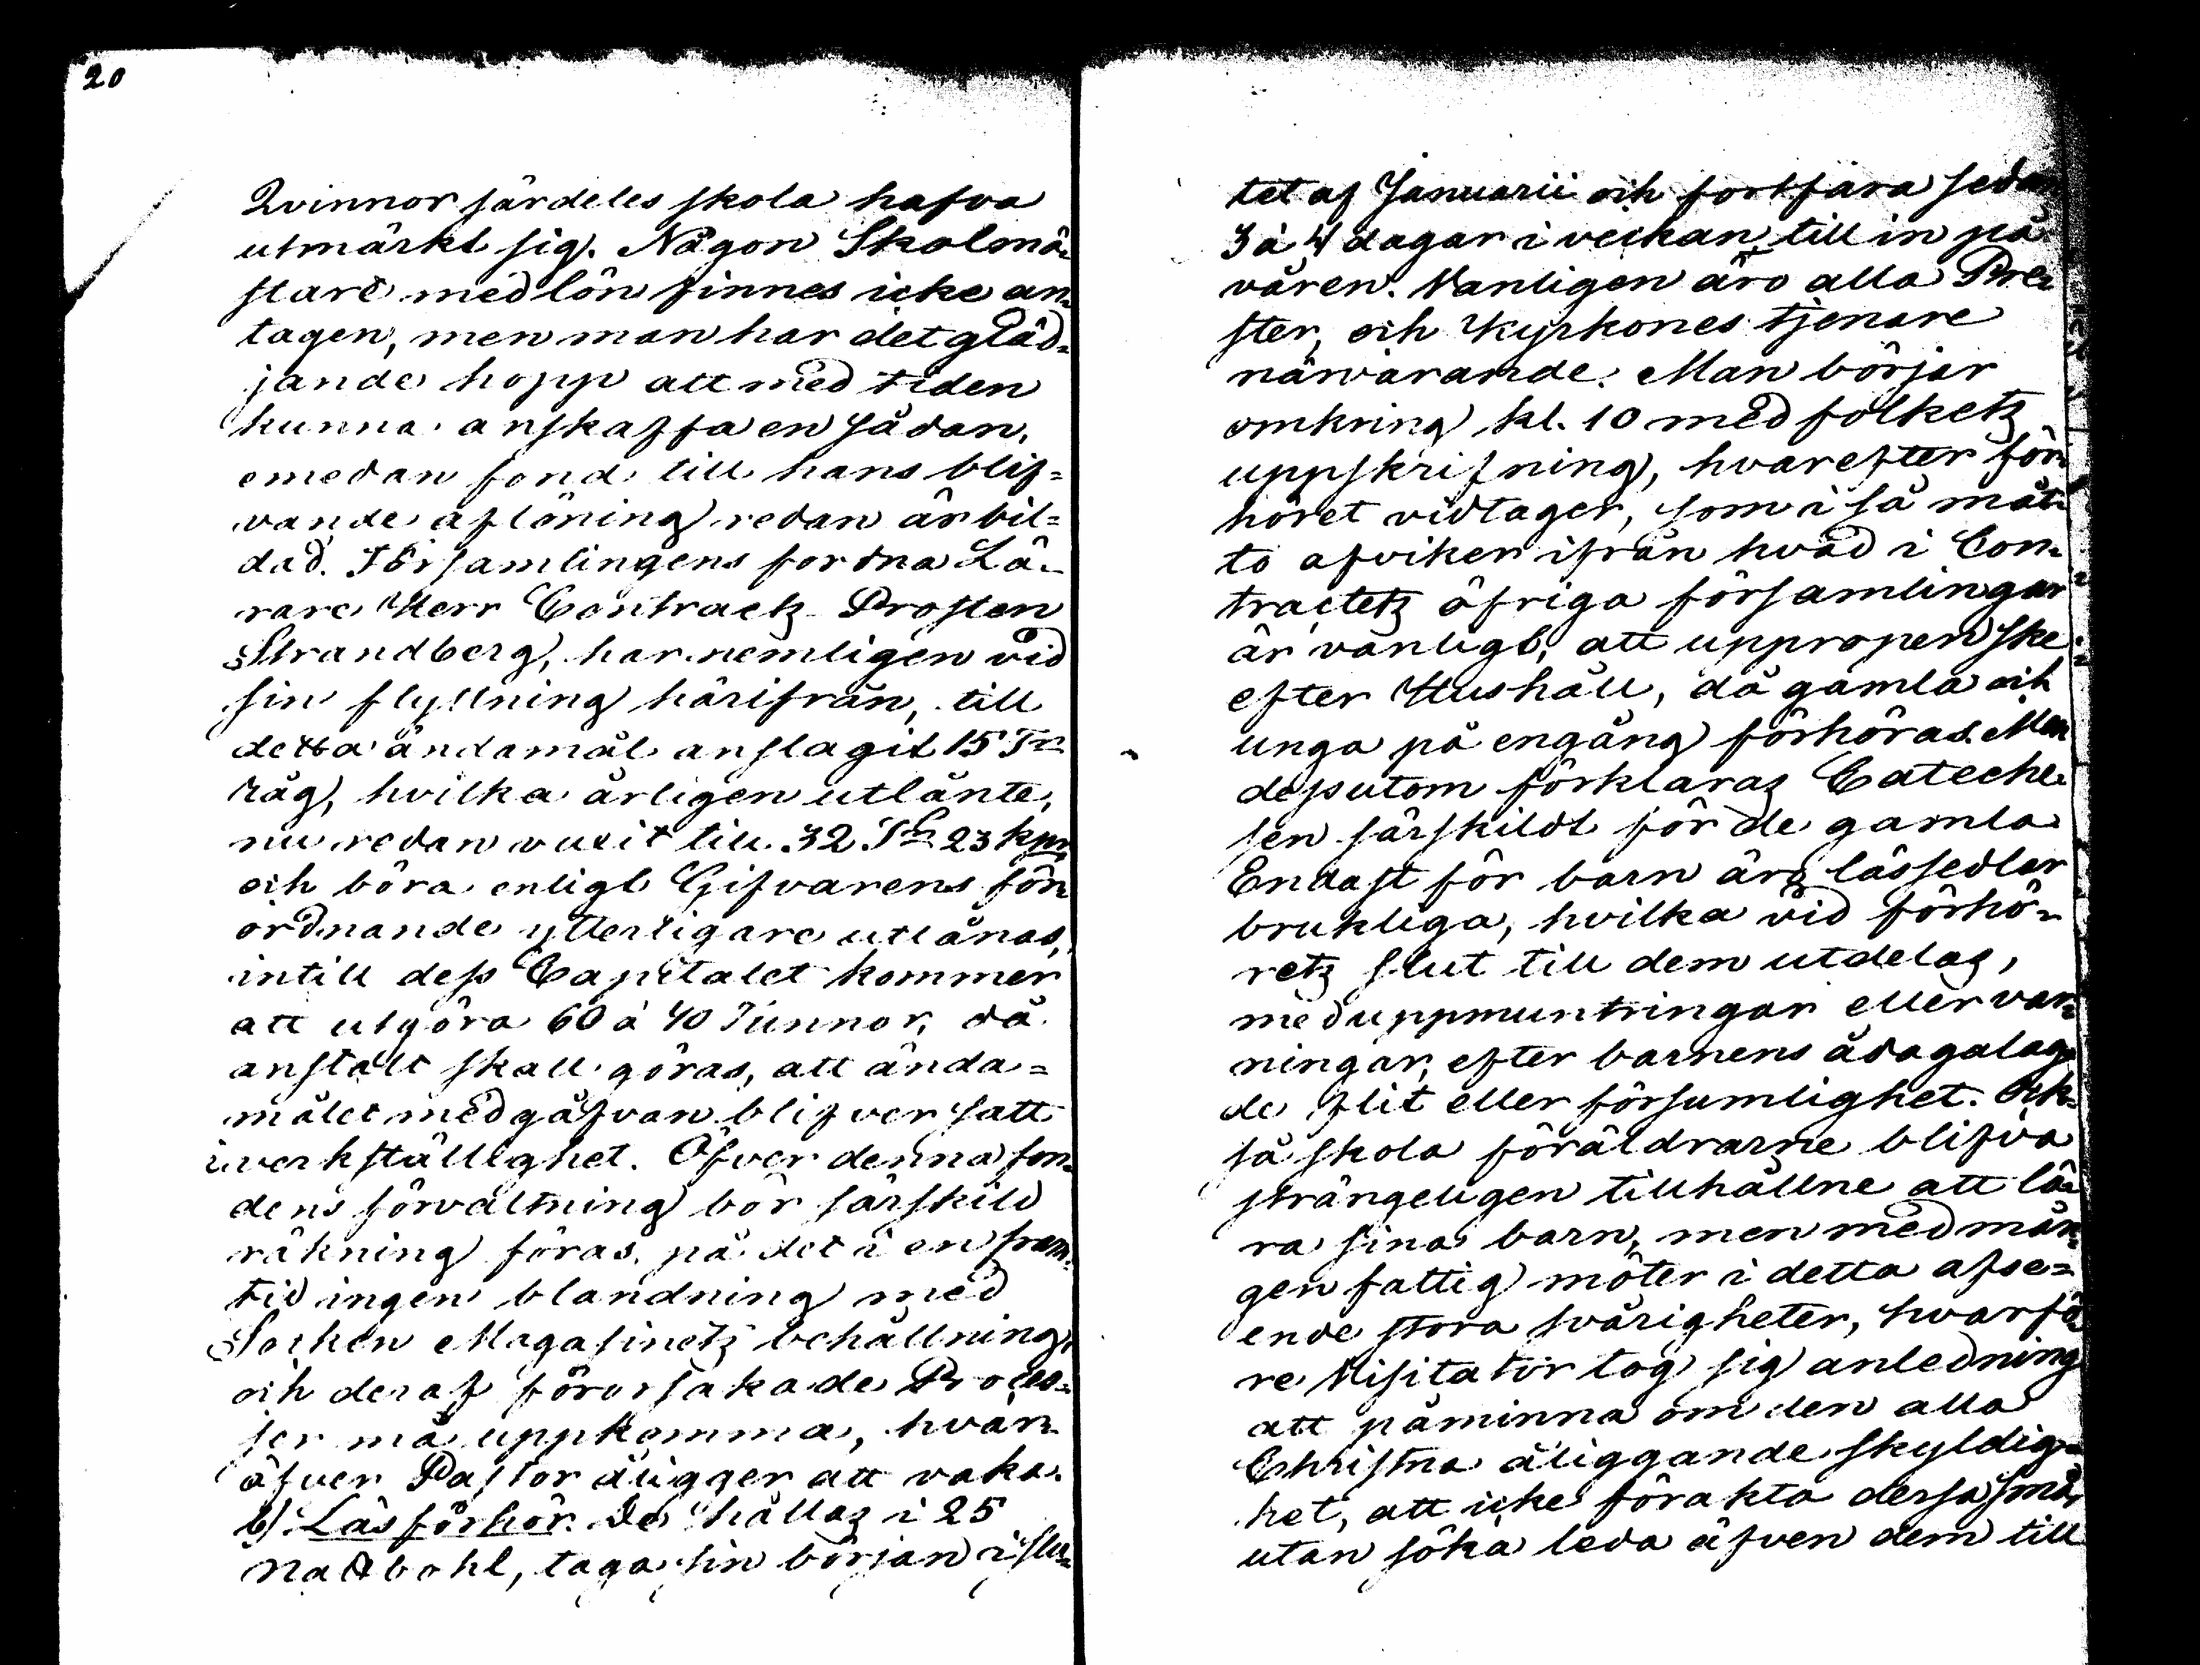 20
Qvinnor särdeles skola hafva
utmärkt sig. Någon Skolmä-
stare med lön finnes icke an-
tagen, men man har det gläd-
jande hopp att med tiden
kunna anskaffa en sådan,
emedan fond till hans blif=
vande aflöning redan är bil=
dad. Församlingens fordna Lä-
rare Herr Contracts Prosten
Strandberg, har nemligen vid
sin flyttning härifrån, till
detta ändamål anslagit 15 Tr
råg, hvilka årligen utlånte,
nu redan vuxit till 32 Tr 23 kpr
och böra enligt Gifvarens för-
ordnande ytterligare utlånas,
intill dess Capitalet kommer
att utgöra 60 à 40 Tunnor, då
anstalt skall göras, att ända=
målet med gåfvan blifver satt
i verkställighet. Öfver denna fon-
dens förvaltning bör särskild
räkning föras, på det i en fram-
tid ingen blandning med
Socken Magasinets behållning,
och deraf förorsakade Proces-
ser må uppkomma, hvar-
öfver Pastor åligger att vaka.
b) Läsförhör. De hållas i 25
Nattbohl, taga sin början i slu-
tet af Januarii och fortfara sedan
3 à 4 dagar i veckan, till in på
våren. Vanligen äro alla Pre-
ster, och Kyrkones tjenare
närvarande. Man börjar
omkring kl. 10 med folkets
uppskrifning, hvarefter för-
höret vidtager, som i så måt-
to afviker ifrån hvad i Con-
tractets öfriga församlingar
är vanligt, att uppropen ske
efter Hushåll, då gamla och
unga på engång förhöras. Men
dessutom förklaras Cateche-
sen särskildt för de gamla
Endast för barn äro lässedlar
brukliga, hvilka vid förhö-
rets slut till dem utdelas,
med uppmuntringar eller var-
ningar, efter barnens ådagalag-
de flit eller försumlighet. Ock-
så skola föräldrarne blifva
strängeligen tillhållne att lä-
ra sina barn, men med mån-
gen fattig möter i detta afse=
ende stora svårigheter, hvarfö-
re Visitator tog sig anledning
att påminna om den alla
Christna åliggande skyldig-
het, att icke förakta dessa små,
utan söka leda äfven dem till